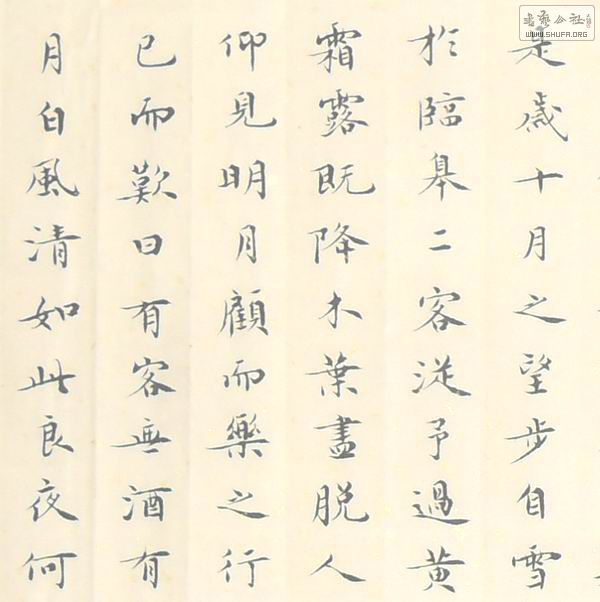 是歲十月之望步自雪
於臨皋二客從予過黃
霜露既降木葉盡脫人
仰見明月顧而樂之行
已而歎曰有客無酒有
月白風清如此良夜何
书艺公社
WWW.SHUFA.ORG